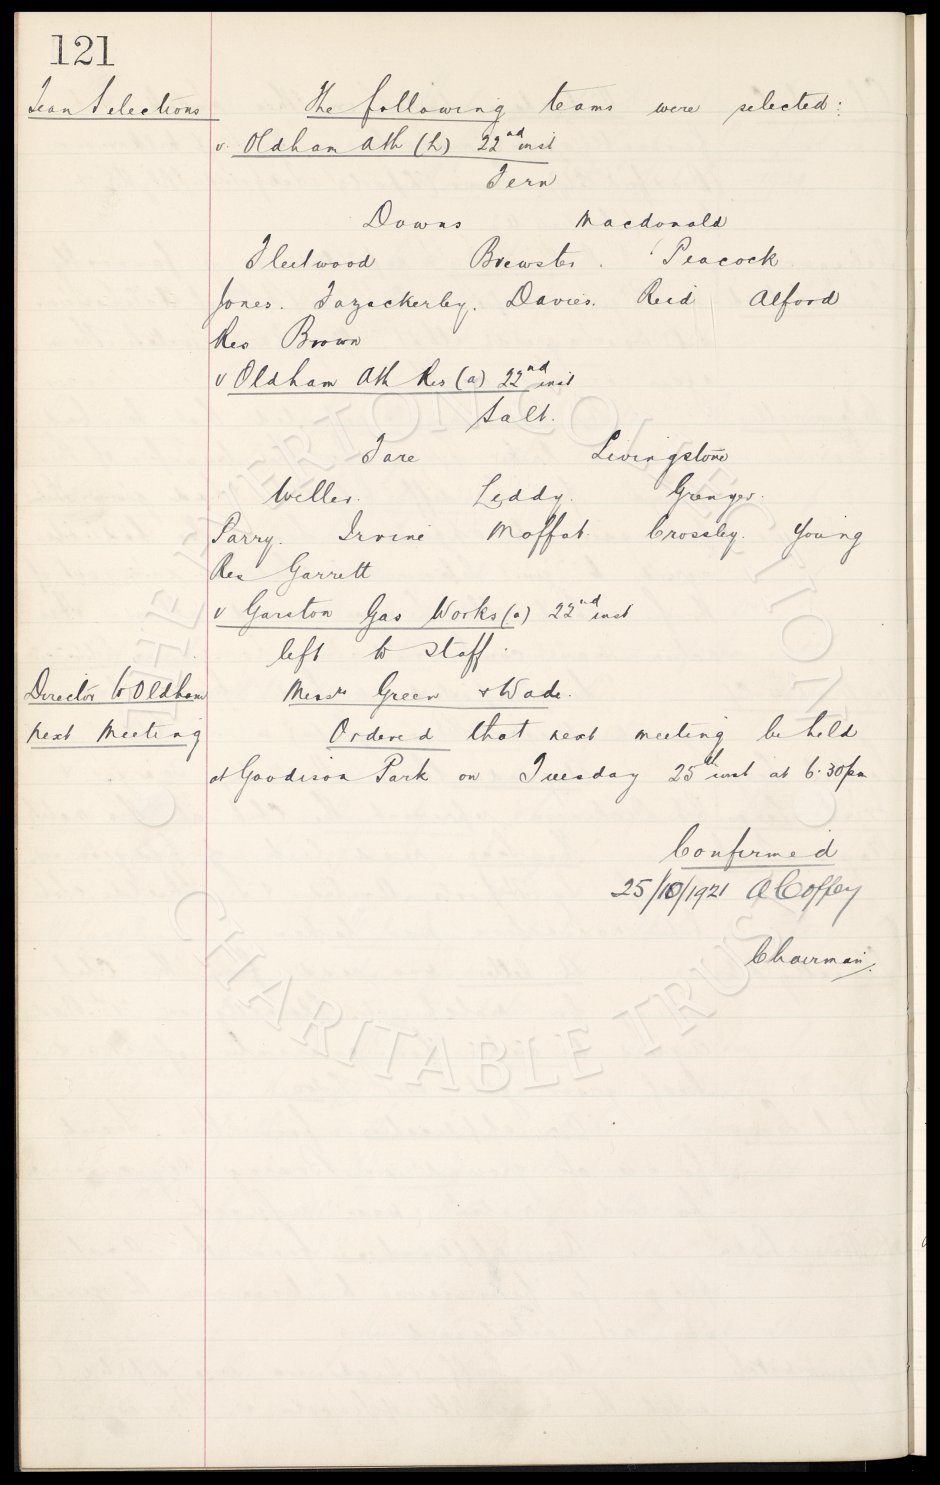 121
Team Selections The following teams were selected:
v. Oldham Ath (h) 22nd inst
Fern
Downs Macdonald
Fleetwood Brewster. Peacock
Jones. Fazackerley. Davies. Reid Alford
Res Brown
v Oldham Ath Res (a) 22nd inst
Salt.
Tare Livingstone
Weller. Leddy. Grenyer.
Parry. Irvine Moffat. Crossley. Young
Res Garrett
v Garston Gas Works (a) 22nd inst
left to Staff.
Director to Oldham Messrs Green & Wade.
Next Meeting Ordered that next meeting be held
at Goodison Park on Tuesday 25th inst at 6.30pm
Confirmed
25/10/1921 A Coffey
Chairman.
THE EVERTON COLLECTION
CHARITABLE TRUST